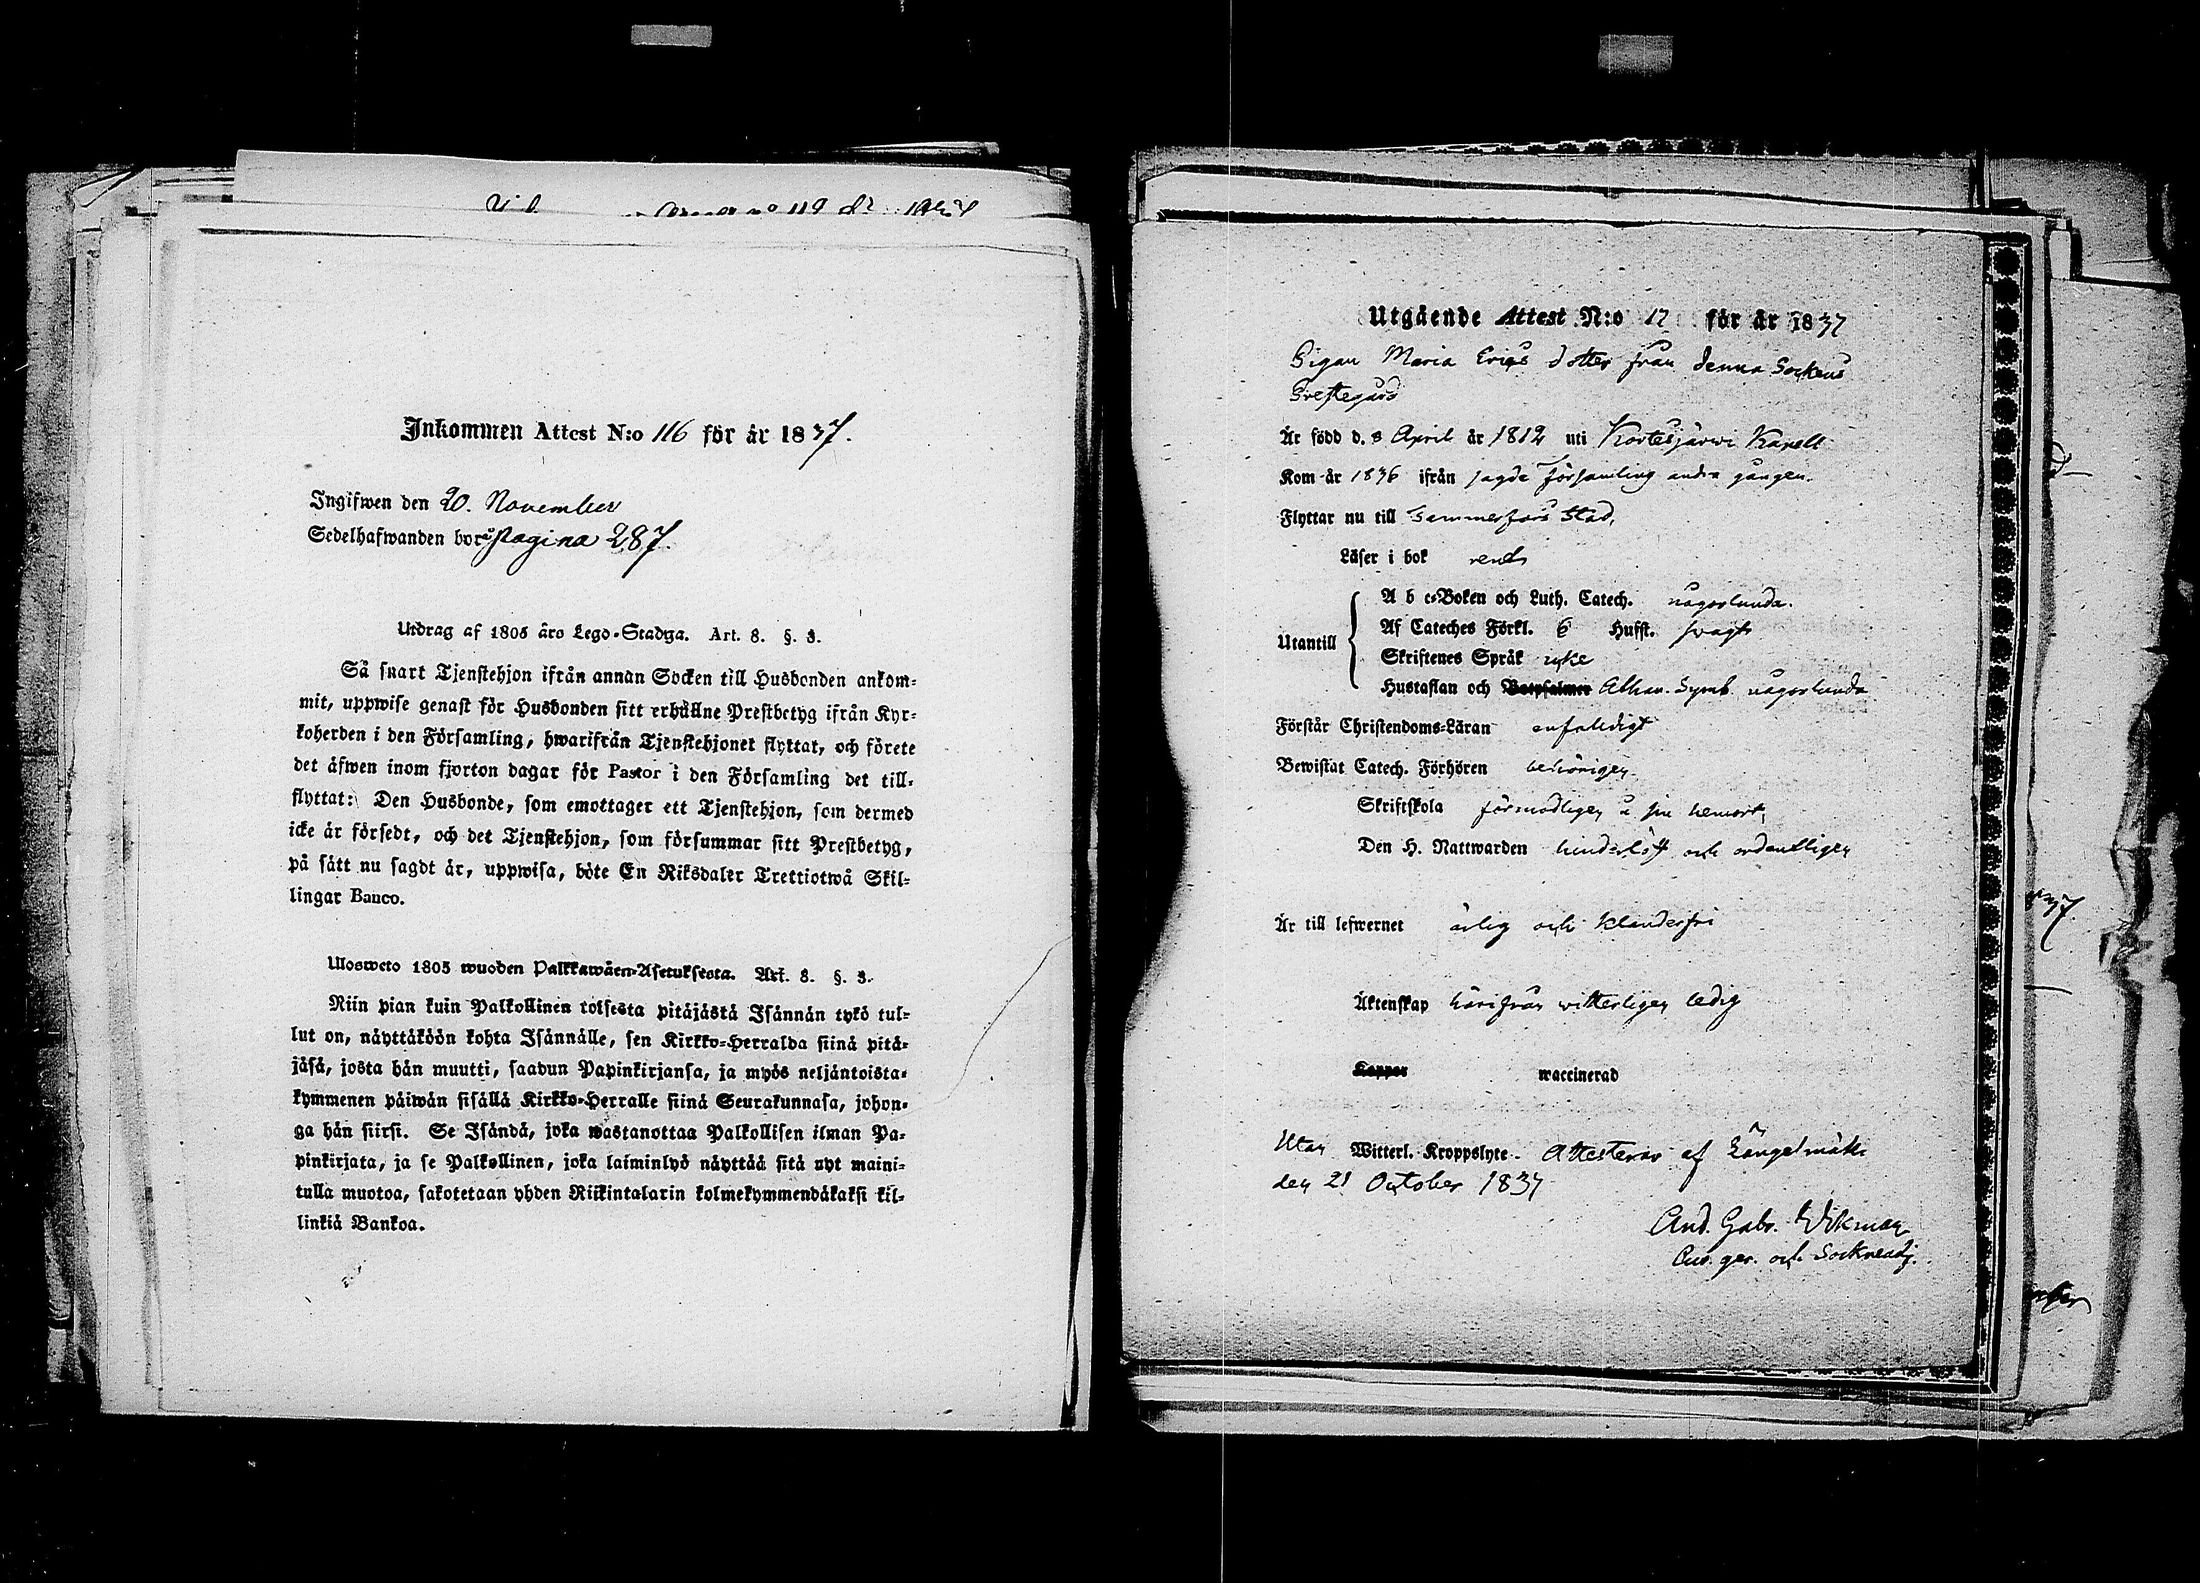 Inkommen Attest N:o 116 för år 1837.
Ingifwen den 20. November
Sedelhafwanden bor å pagina 287.
Utdrag af 1805 års Lego-Stadga. Art. 8. §. 3.
Så snart Tjenstehjon ifrån annan Socken till Husbonden ankom-
mit, uppwise genast för Husbonden sitt erhållne Prestbetyg ifrån Kyr-
koherden i den Församling, hwarifrån Tjenstehjonet flyttat, och förete
det äfwen inom fjorton dagar för Pastor i den Församling det till-
flyttat: Den Husbonde, som emottager ett Tjenstehjon, som dermed
icke är försedt, och det Tjenstehjon, som försummar sitt Prestbetyg,
på sätt nu sagdt är, uppwisa, böte En Riksdaler Trettiotwå Skil-
lingar Banco.
Ulosweto 1805 wuoden Palkkawäen-Asetuksesta. Art. 8. §. 3.
Niin pian kuin Palkollinen toisesta pitäjästä Isännän tykö tul-
lut on, näyttäköön kohta Isännälle, sen Kirkko-Herralda siinä pitä-
jäsä, josta hän muutti, saadun Papinkirjansa, ja myös neljäntoista-
kymmenen päiwän sisällä Kirkko-Herralle siinä Seurakunnasa, johon-
ga hän siirsi. Se Isändä, joka wastanottaa Palkollisen ilman Pa-
pinkirjata, ja se Palkollinen, joka laiminlyö näyttää sitä nyt maini-
tulla muotoa, sakotetaan yhden Riikintalarin kolmekymmendäkaksi kil-
linkiä Bankoa.
Utgående Attest N:o 12 för år 1837
Pigan Maria Erics dotter från denna Sockens
Prestegård
Är född d. 8 April år 1812 uti Kortesjärwi Kapell
Kom år 1836 ifrån sagde Församling andra gången.
Flyttar nu till Tammerfors Stad.
Läser i bok rent
A b c-Boken och Luth. Catech. någorlunda.
Utantill Af Cateches Förkl. 6 Hufst. swagt
Skriftenes Språk icke
Hustaflan och Botpsalmer Athan. Symb. någorlunda
Förstår Christendoms-Läran enfaldigt
Bewistat Catech. Förhören behörigen
Skriftskola förmodligen i sin hemort,
Den H. Nattwarden hinderlöst och ordentligen
Är till lefwernet ärlig och klanderfri
Äktenskap härifrån witterligen ledig
Koppor waccinerad
Utan Witterl. Kroppslyte. Attesterar af Längelmäki
den 21 October 1837
And. Gabr. Wikman
och Sockneadj.